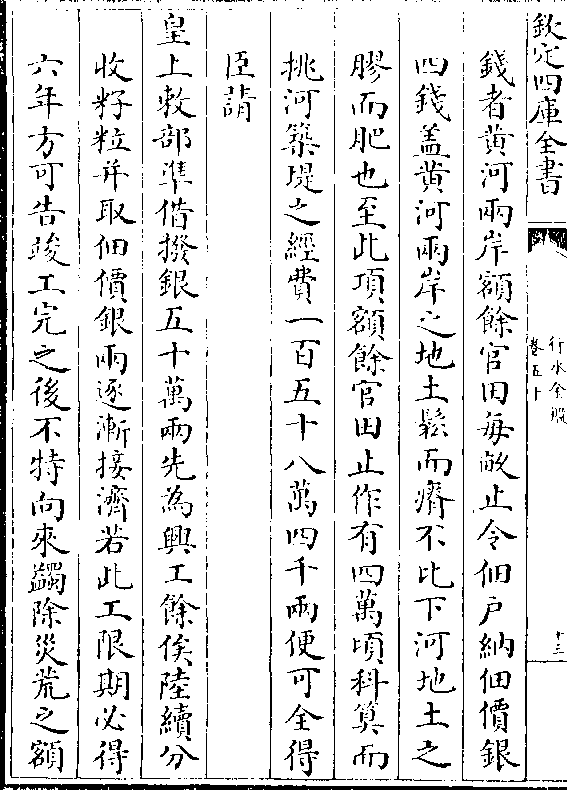 欽定四庫全書
行水金鑑
卷五十
十三
錢者黄河兩岸額餘官田每畝止令佃户納佃價銀
四錢葢黄河兩岸之地土鬆而瘠不比下河地土之
膠而肥也至此項額餘官田止作有四萬頃科算而
挑河築堤之經費一百五十八萬四千兩便可全得
臣請
皇上敕部準借撥銀五十萬兩先為興工餘俟陸續分
收籽粒并取佃價銀兩逐漸接濟若此工限期必得
六年方可告竣工完之後不特向來蠲除災荒之額